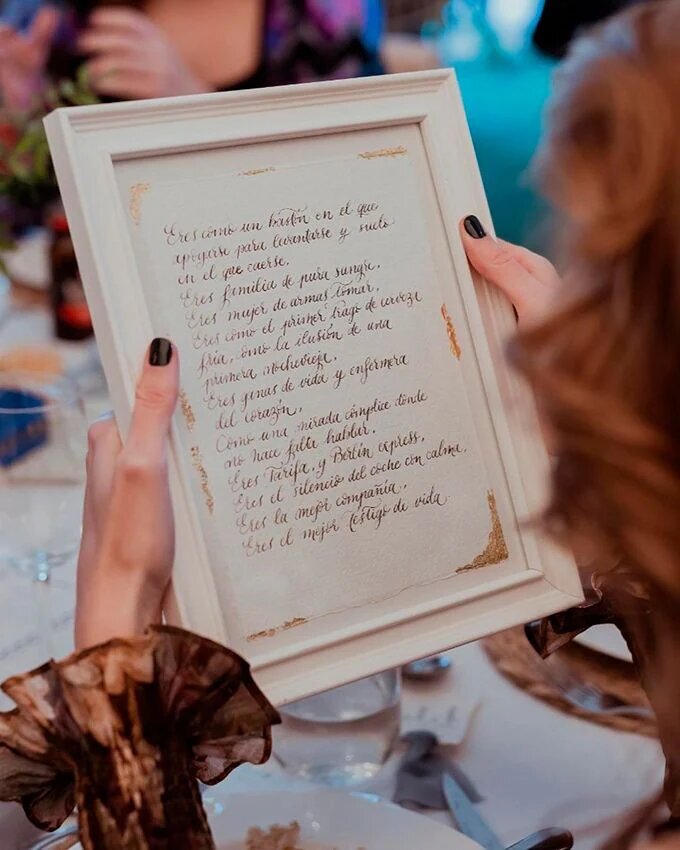 Eres como un bastón en el que
apoyarse para levantarse y suelo
en el que caerse.
Eres familia de pura sangre,
Eres mujer de armas tomar,
Eres como el primer trago de cerveza
fría, como la ilusión de una
primera nochevieja.
Eres ganas de vida y enfermera
del corazón,
Como una mirada cómplice donde
no hace falta hablar.
Eres Tarifa, y Berlín express,
Eres el silencio del coche con calma,
Eres la mejor compañía,
Eres el mejor testigo de vida